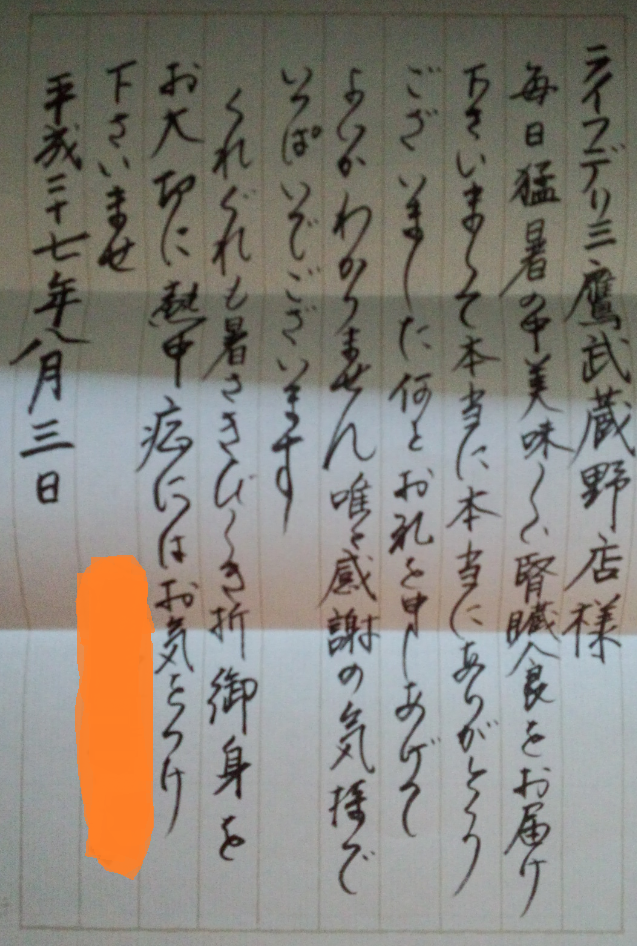 ライフデリ三鷹武蔵野店様
毎日猛暑の中美味しい腎臓食をお届け
下さいまして本当に本当にありがとう
ございました何とお礼を申しあげて
よいかわかりません唯々感謝の気持で
いっぱいでございます
くれぐれも暑さきびしき折御身を
お大切に熱中症にはお気をつけ
下さいませ
平成二十七年八月三日